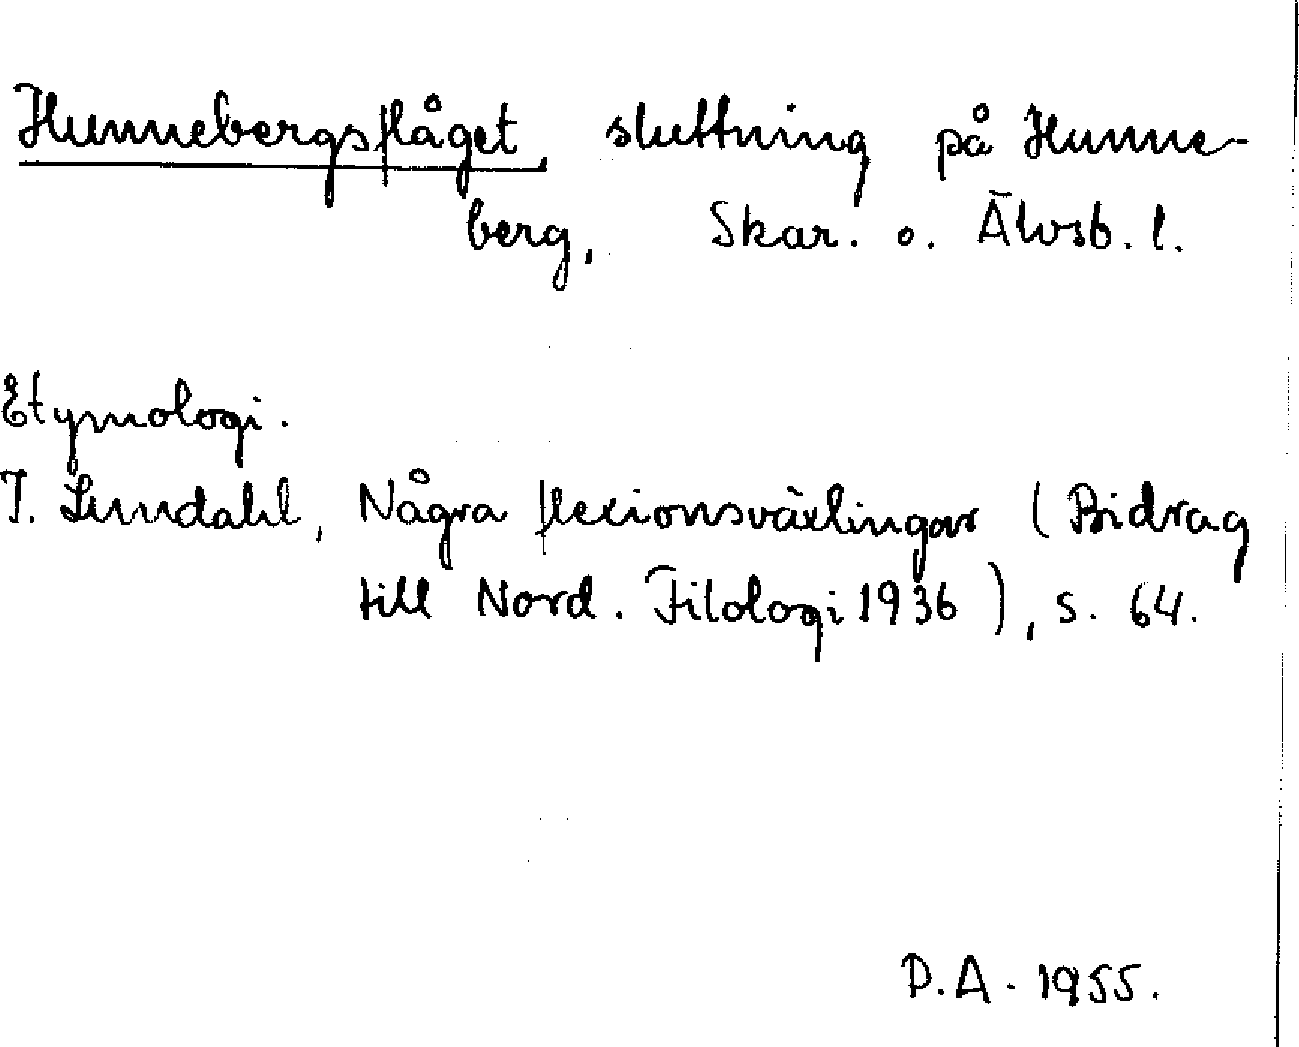 Hunnebergsflåget, sluttning på Hunne-
berg, Skar. o. Älvsb. l.
Etymologi.
I. Lundahl, Några flexionsväxlingar (Bidrag
till Nord. Filologi 1936), s. 64.
P.A. 1955.